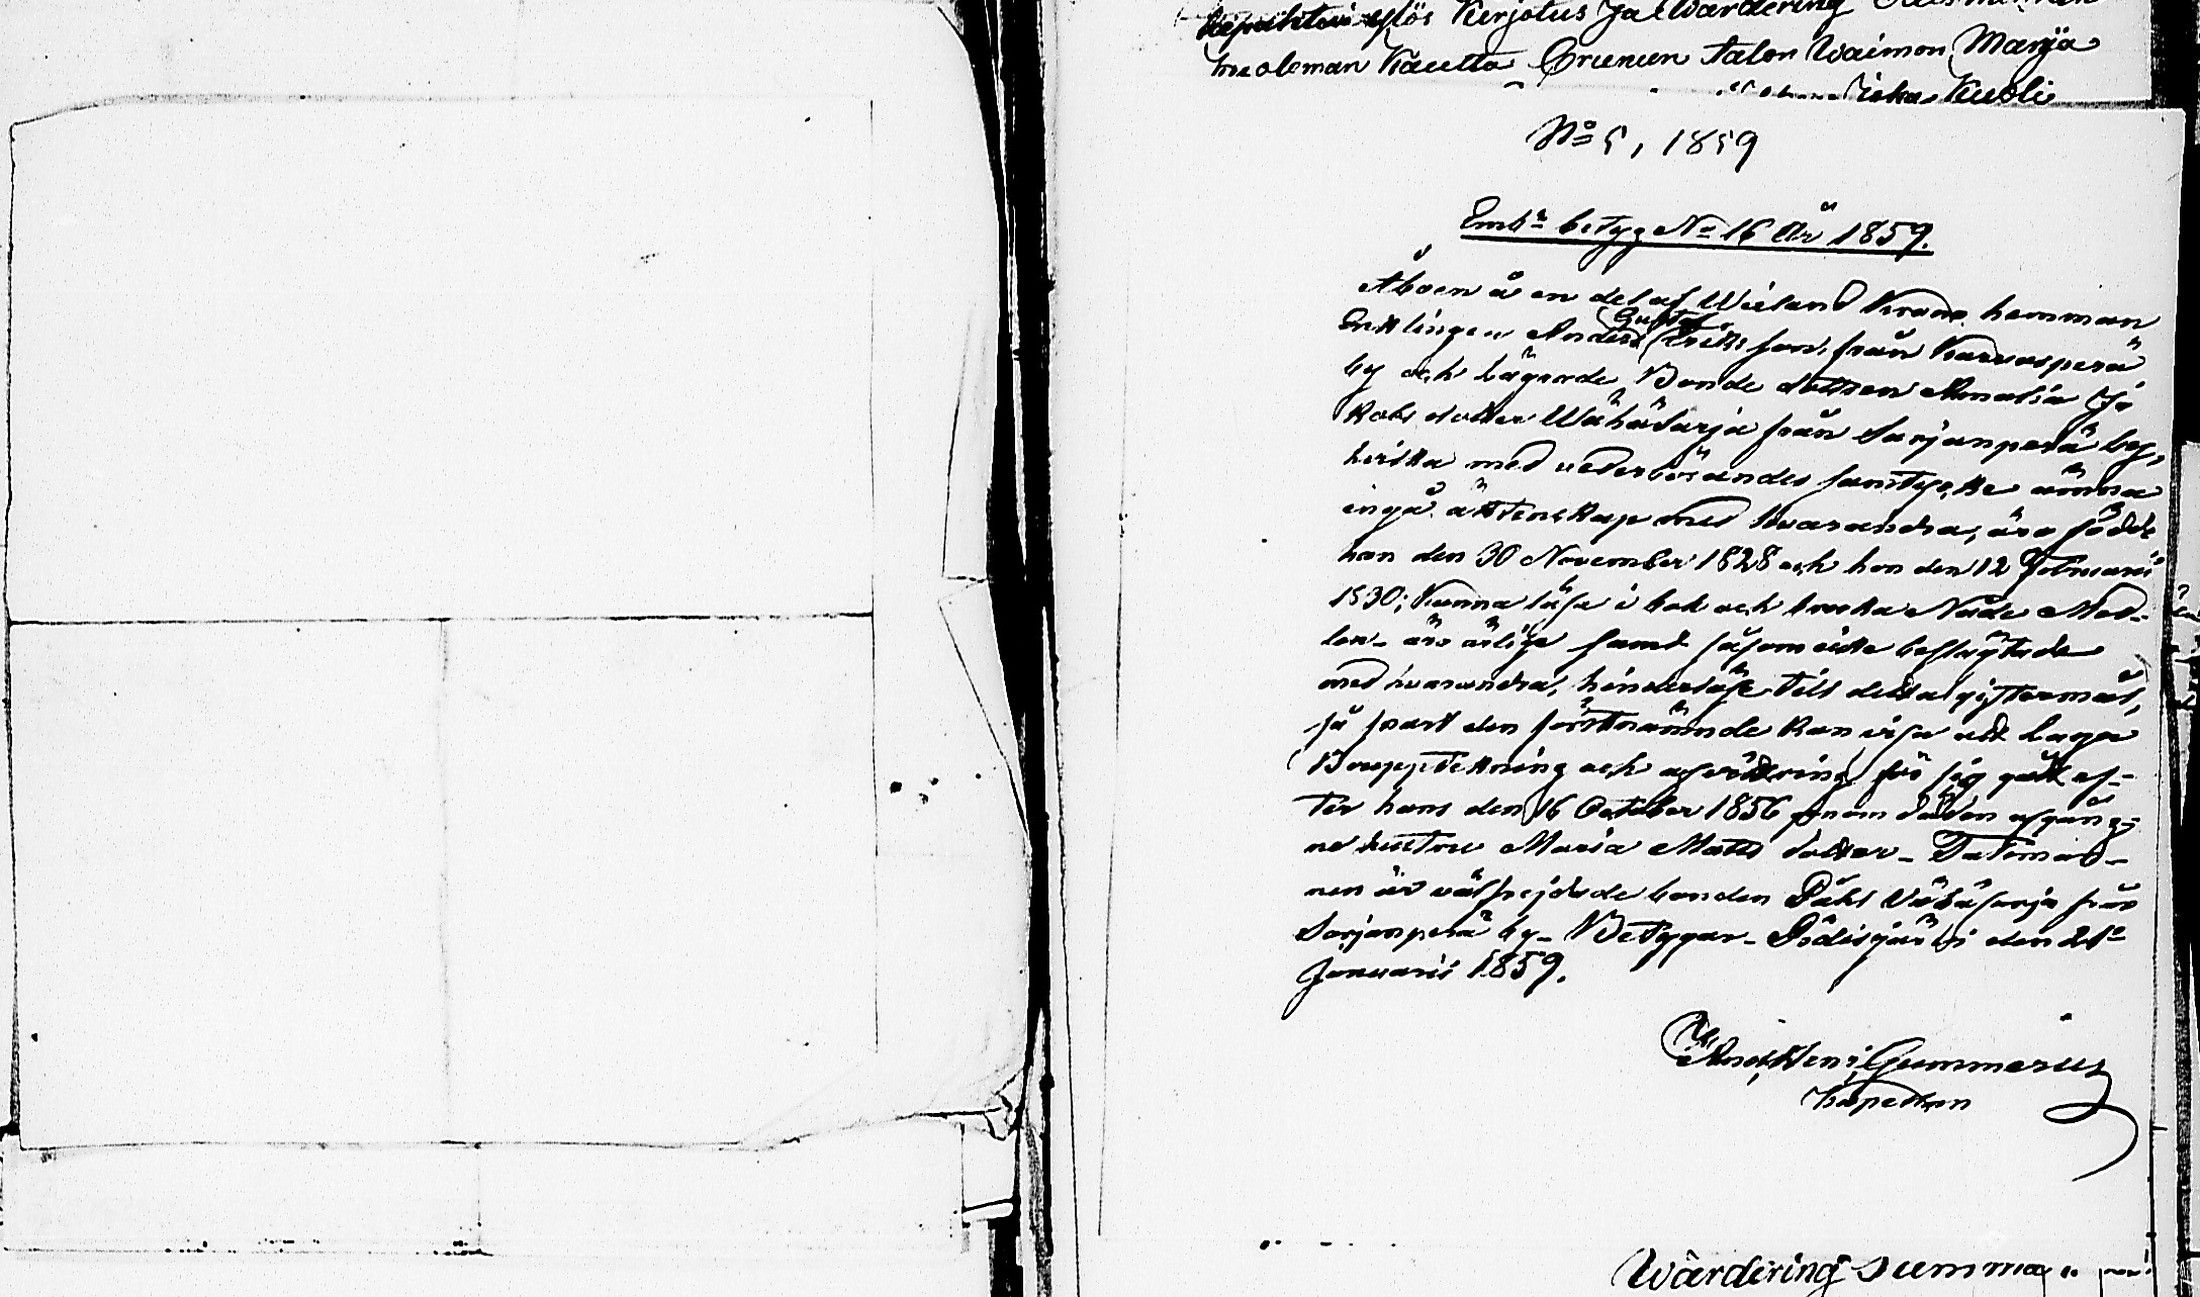 ylös Kirjotus Ja Wärdering
kuoleman Kautta talon Waimon Marja
Kuoli
No 5, 1859
Embs betyg No 16 År 1859.
Åboen å en del af Wieland Krono hemman
Enklingen Anders Gustaf Eriks son, från Karvosperä
by och lägrade Bonde dottren Amalia Ja
kobs dotter Wähäsarja från Sarjanperä by,
hvilka med vederbörandes samtycke ämna
ingå äktenskap med hvarandra, äro födde
han den 30 November 1828 och hon den 12 Februarii
1830; Kunna läsa i bok och bruka Nåde Med-
len - äro ärlige samt såsom icke beslägtade
med hvarandra, hinderslöse till detta giftermål,
så snart den förstnämnde kan visa att laga
Bouppteckning och afvittring för sig gått ef-
ter hans den 16 October 1856 genom döden afgång-
ne hustru Maria Mats dotter - Taleman-
nen är välfrejdade bonden Påhl Vähäsarja från
Sarjanperä by - Betygar - Pödisjärvi den 21e
Januarii 1859.
Gummerus
Kapellan
Wärdering Summa